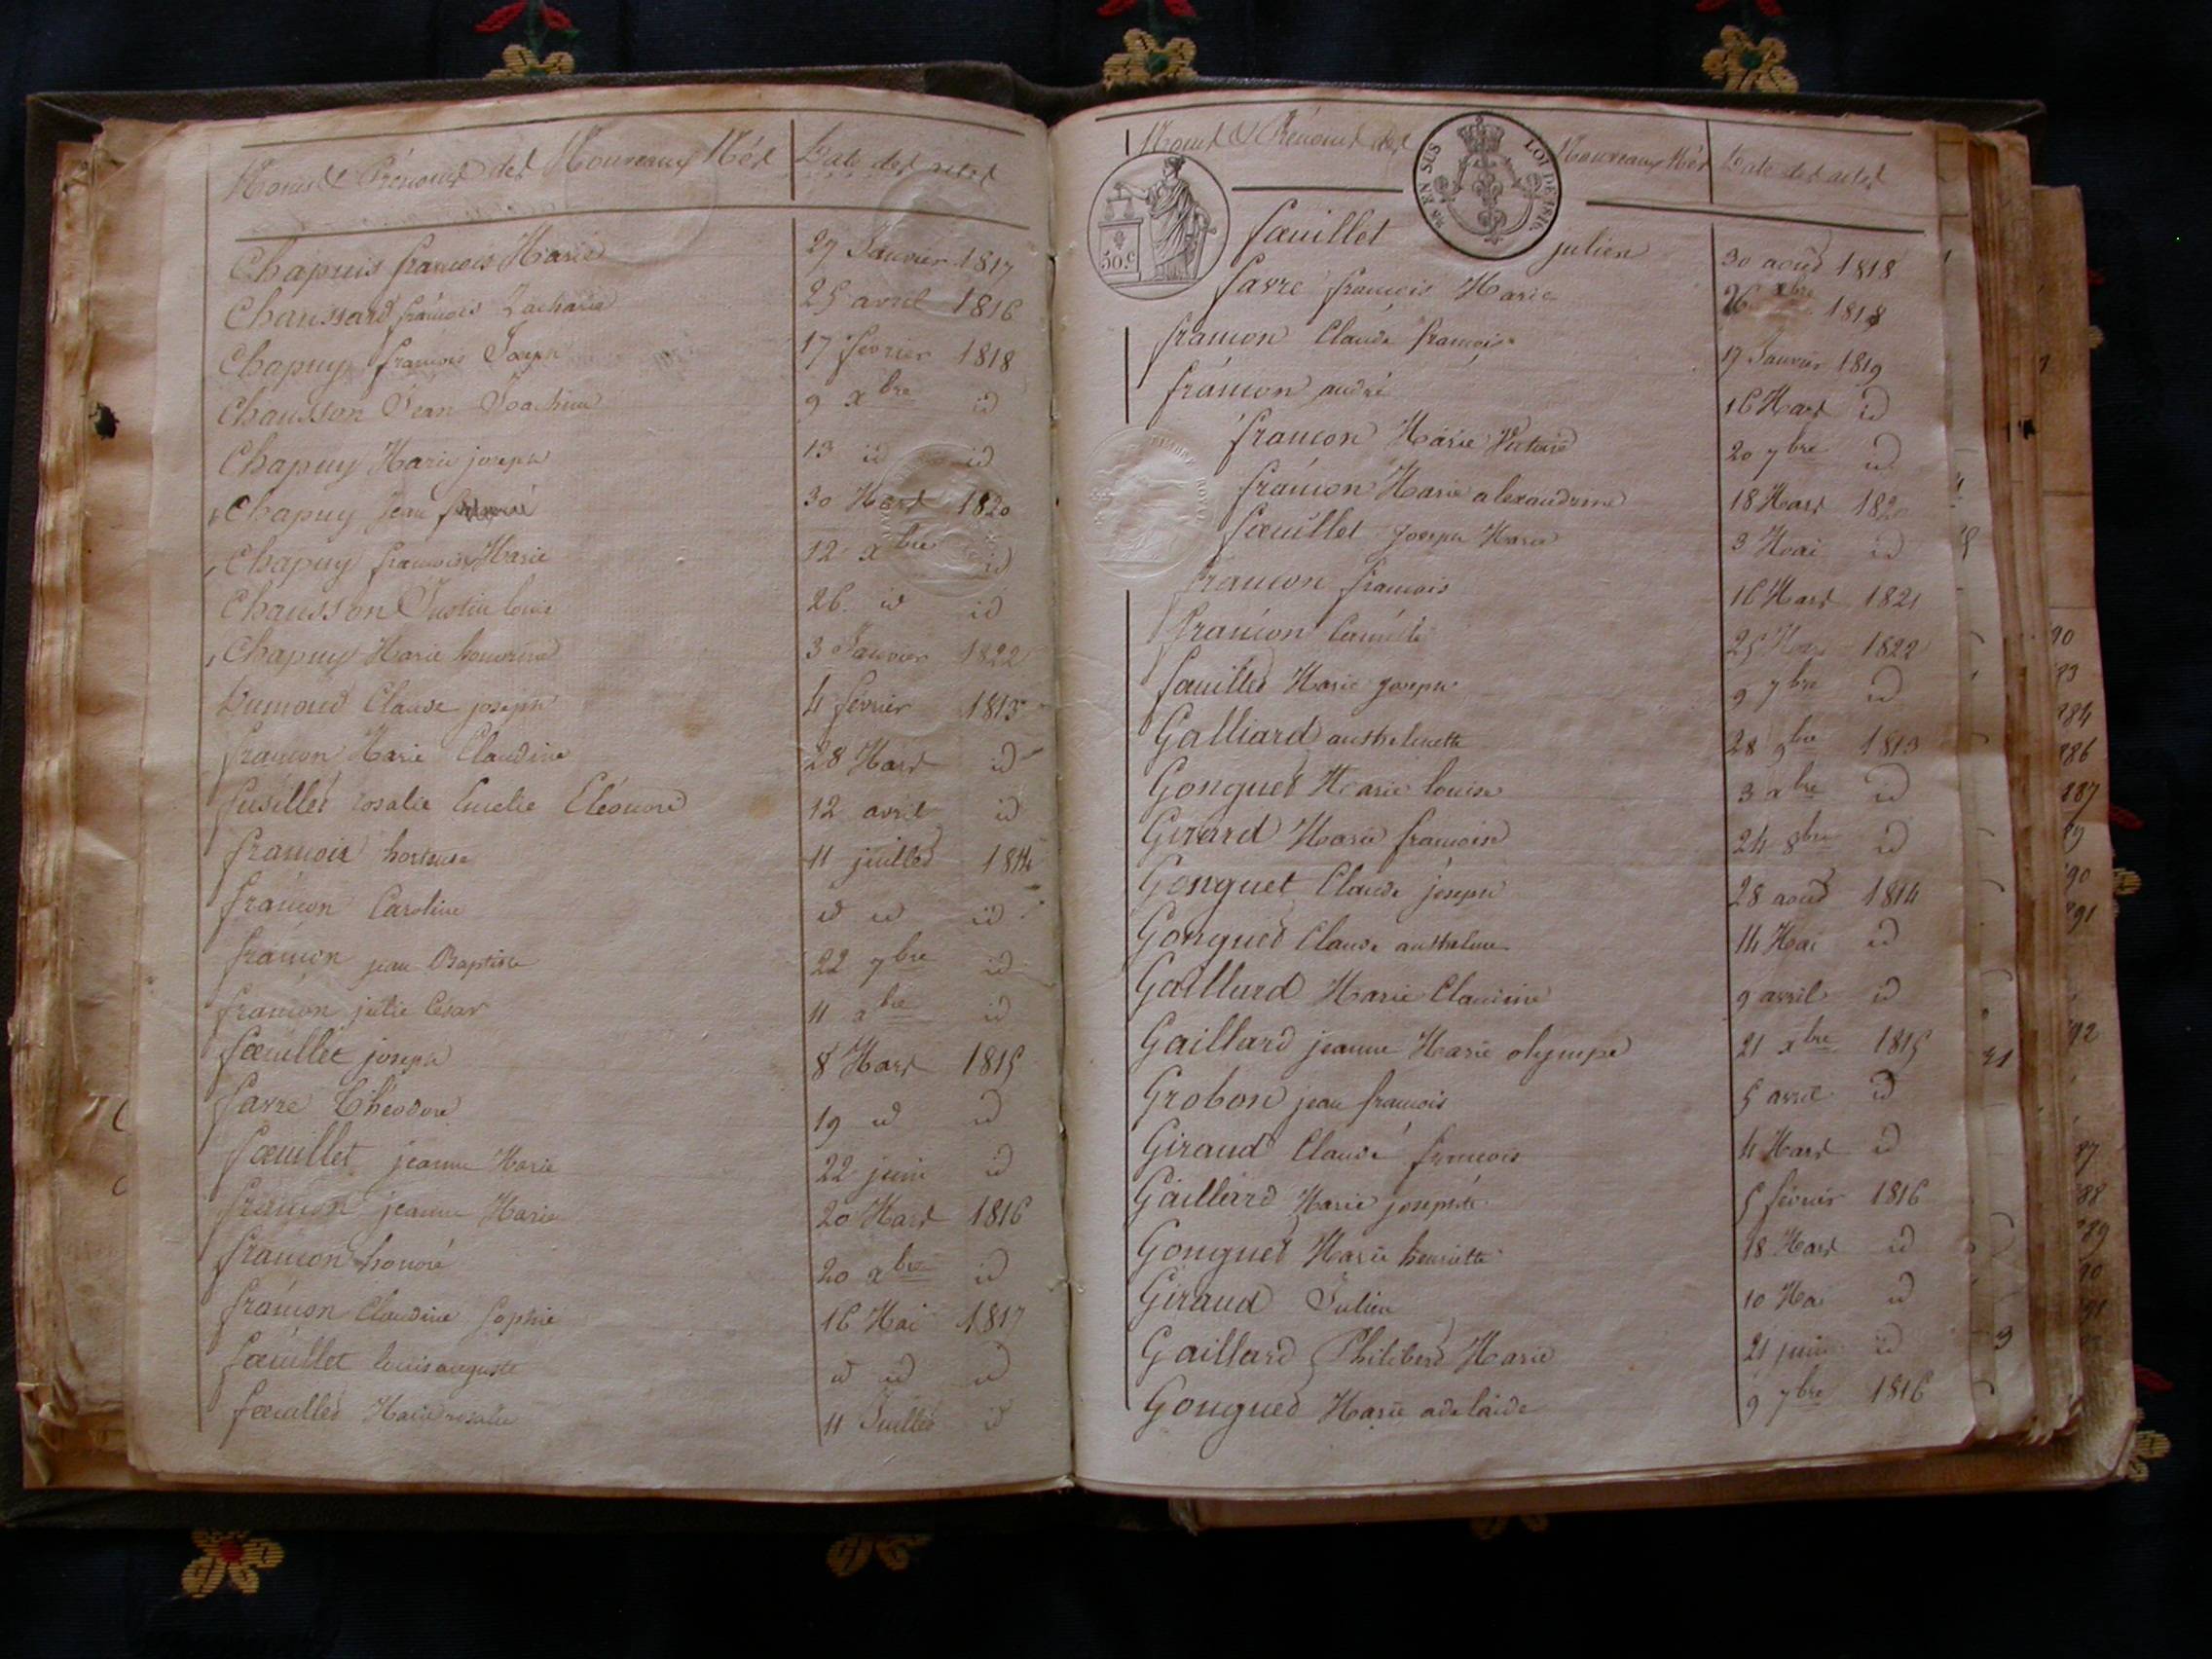 Noms & Prénoms des Nouveaux Nés Date des actes
Chapuis françois Marie 27 Janvier 1817
Chaussard françois Zacharie 25 avril 1816
Chapuy françois Joseph 17 février 1818
Chausson Jean Joachim 9 xbre id
Chapuy Marie joseph 13 id id
Chapuy Jean 30 Mars 1820
Chapuy françois Marie 12 xbre id
Chausson Justin louis 26 id id
Chapuy Marie honorine 3 Janvier 1822
Dumond Claude joseph 4 février 1813
françon Marie Claudine 28 Mars id
fusillet rosalie Emelie Eléonore 12 avril id
françois hortense 11 juillet 1814
françon Caroline id id id
françon jean Baptiste 22 7bre id
françon julie Cesar 11 xbre id
fœuillet joseph 8 Mars 1815
favre Théodore 19 id id
fœuillet jeanne Marie 22 juin id
françon jeanne Marie 20 Mars 1816
françon honoré 20 xbre id
françon Claudine Sophie 16 Mai 1817
fœuillet louis auguste id id id
fœuillet Marie rosalie 11 Juillet id
Noms & Prénoms des Nouveaux Nés Date des actes
EN SUS LOI DE 1816
50.c
fœuillet julien 30 août 1818
favre françois Marie 26 xbre 1818
françon Claude françois 17 Janvier 1819
françon andré 16 Mars id
françon Marie Victoire 20 7bre id
françon Marie alexandrine 18 Mars 1820
fœuillet Joseph Marie 3 Mai id
françon françois 16 Mars 1821
françon Camille 25 1822
fœuillet Marie Joseph 9 7bre id
Galliard anthelmette 28 9bre 1813
Gonguet Marie louise 3 xbre id
Girard Marie françoise 24 8bre id
Gonguet Claude joseph 28 août 1814
Gonguet Claude anthelme 14 Mai id
Gaillard Marie Claudine 9 avril id
Gaillard jeanne Marie olympe 21 xbre 1815
Grobon jean françois 5 avril id
Giraud Claude françois 4 Mars id
Gaillard Marie josephte 5 février 1816
Gonguet Marie henriette 18 Mars id
Giraud Julien 10 Mai id
Gaillard Philibert Marie 21 juin id
Gonguet Marie adelaide 9 7bre 1816